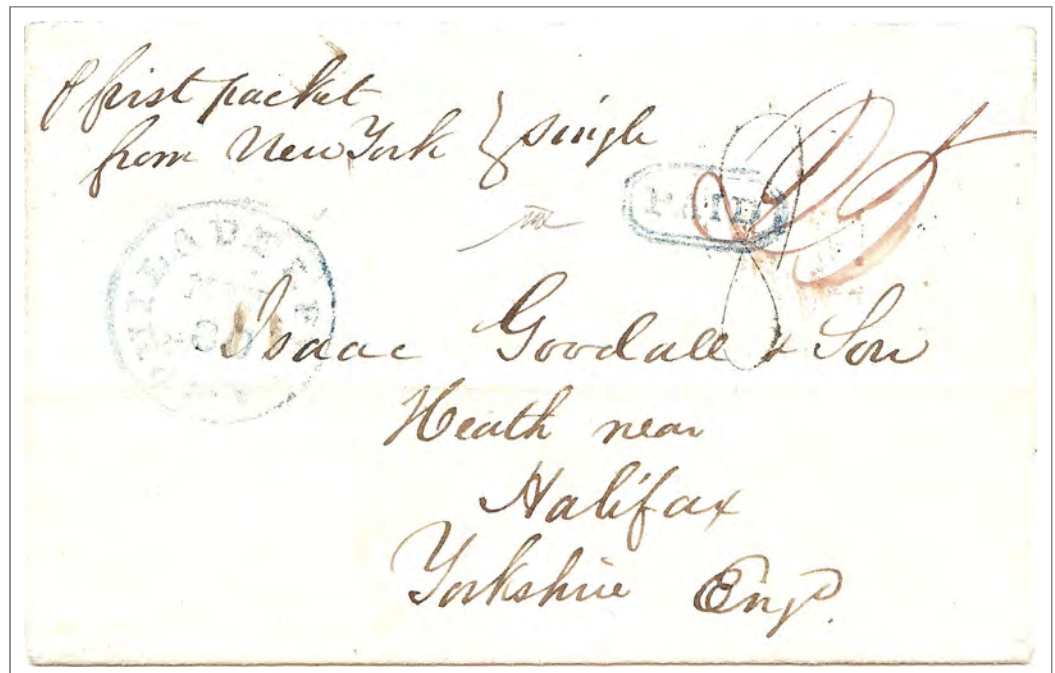 P first packet
from New York } single
PAID
8
Isaac Goodall & Son
Heath near
Halifax
Yorkshire Engd.